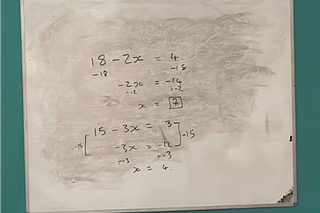 18 - 2x = 4
-18 -18
-2x = -14
÷-2 ÷-2
x = 7
15 - 3x = 3
-15 -15
-3x = -12
÷-3 ÷-3
x = 4